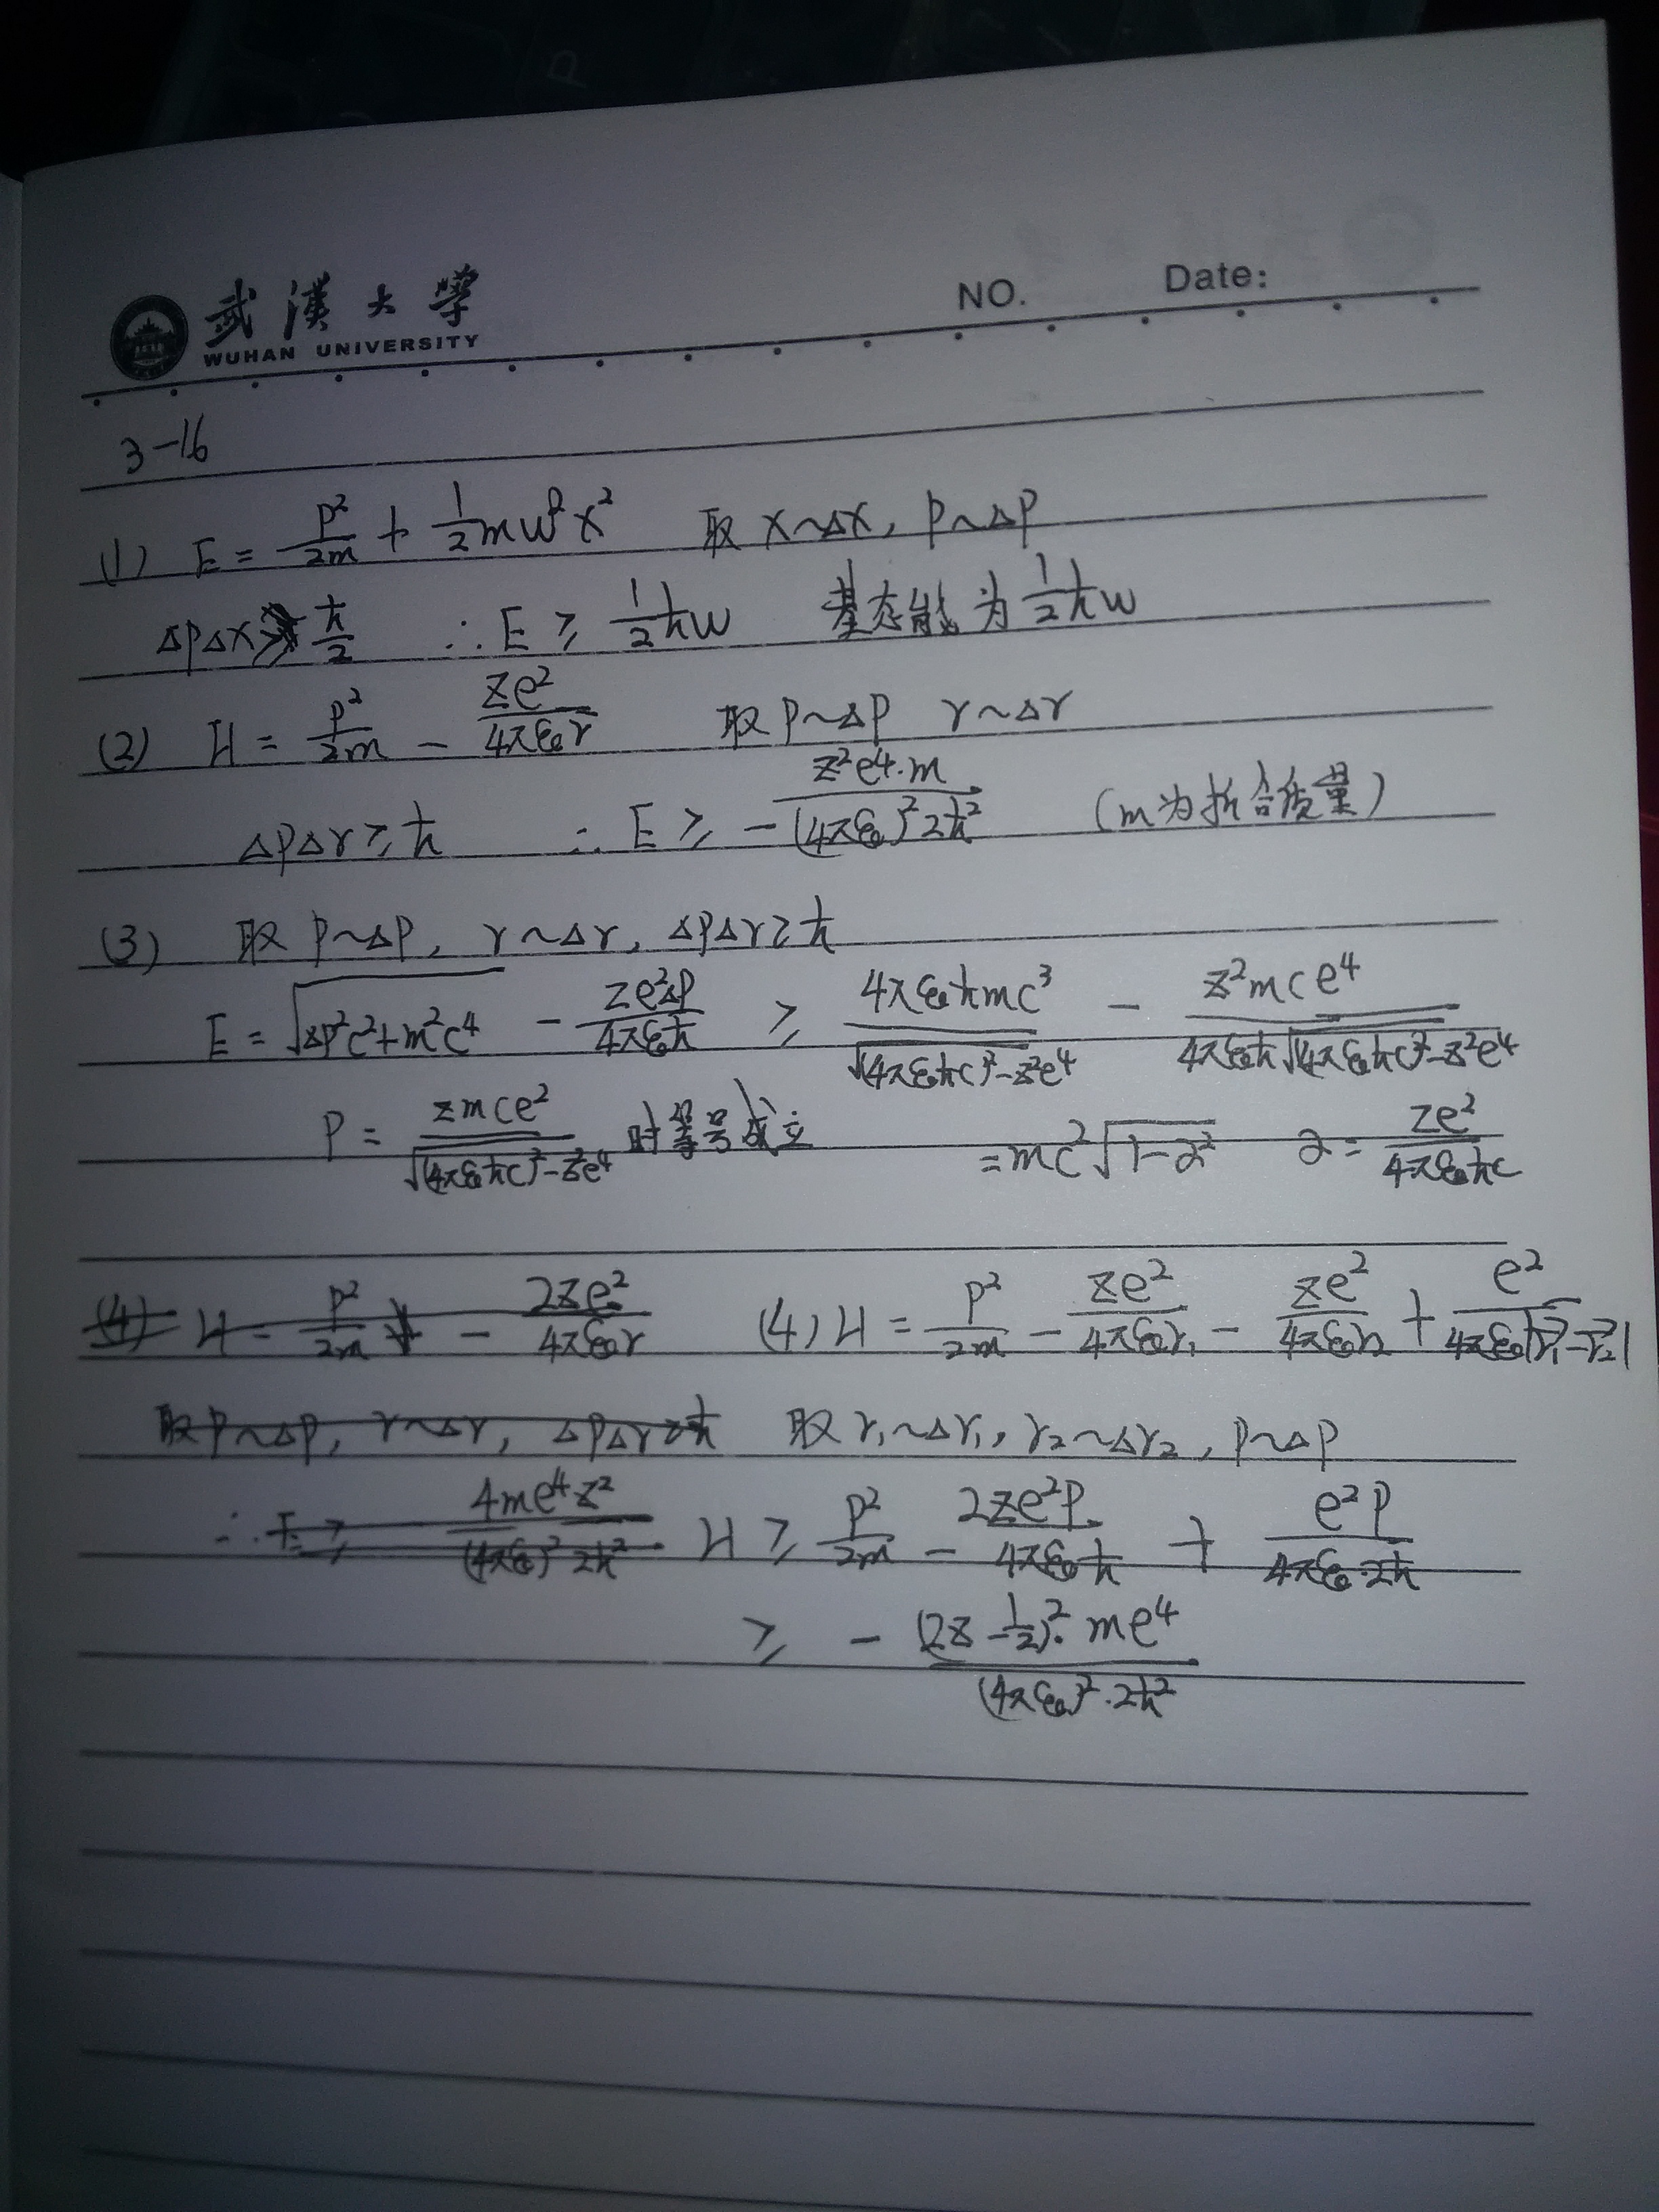 武漢大學
WUHAN UNIVERSITY
NO. Date:
3-16
(1) E = p²/2m + 1/2 mω²x² 取 x~Δx, p~Δp
ΔpΔx ≥ ħ/2 ∴ E ≥ 1/2 ħω 基态能为 1/2 ħω
(2) H = p²/2m - Ze²/4πε₀r 取 p~Δp r~Δr
ΔpΔr ≥ ħ ∴ E ≥ - Z²e⁴·m/(4πε₀)²2ħ² (m为折合质量)
(3) 取 p~Δp, r~Δr, ΔpΔr ≥ ħ
E = √(Δp²c²+m²c⁴) - Ze²Δp/4πε₀ħ ≥ 4πε₀ħmc³/√((4πε₀ħc)²-Z²e⁴) - Z²mce⁴/4πε₀ħ√((4πε₀ħc)²-Z²e⁴)
P = Zmce²/√((4πε₀ħc)²-Z²e⁴) 时等号成立 = mc²√(1-α²) α = Ze²/4πε₀ħc
(4) H = p²/2m - 2Ze²/4πε₀r (4) H = p²/2m - Ze²/4πε₀r₁ - Ze²/4πε₀r₂ + e²/4πε₀|r⃗₁-r⃗₂|
取 p~Δp, r~Δr, ΔpΔr ≥ ħ 取 r₁~Δr₁, r₂~Δr₂, p~Δp
∴ E ≥ 4me⁴Z²/(4πε₀)²·2ħ² H ≥ p²/2m - 2Ze²p/4πε₀ħ + e²p/4πε₀·2ħ
≥ - (2Z-1/2)²·me⁴/(4πε₀)²·2ħ²